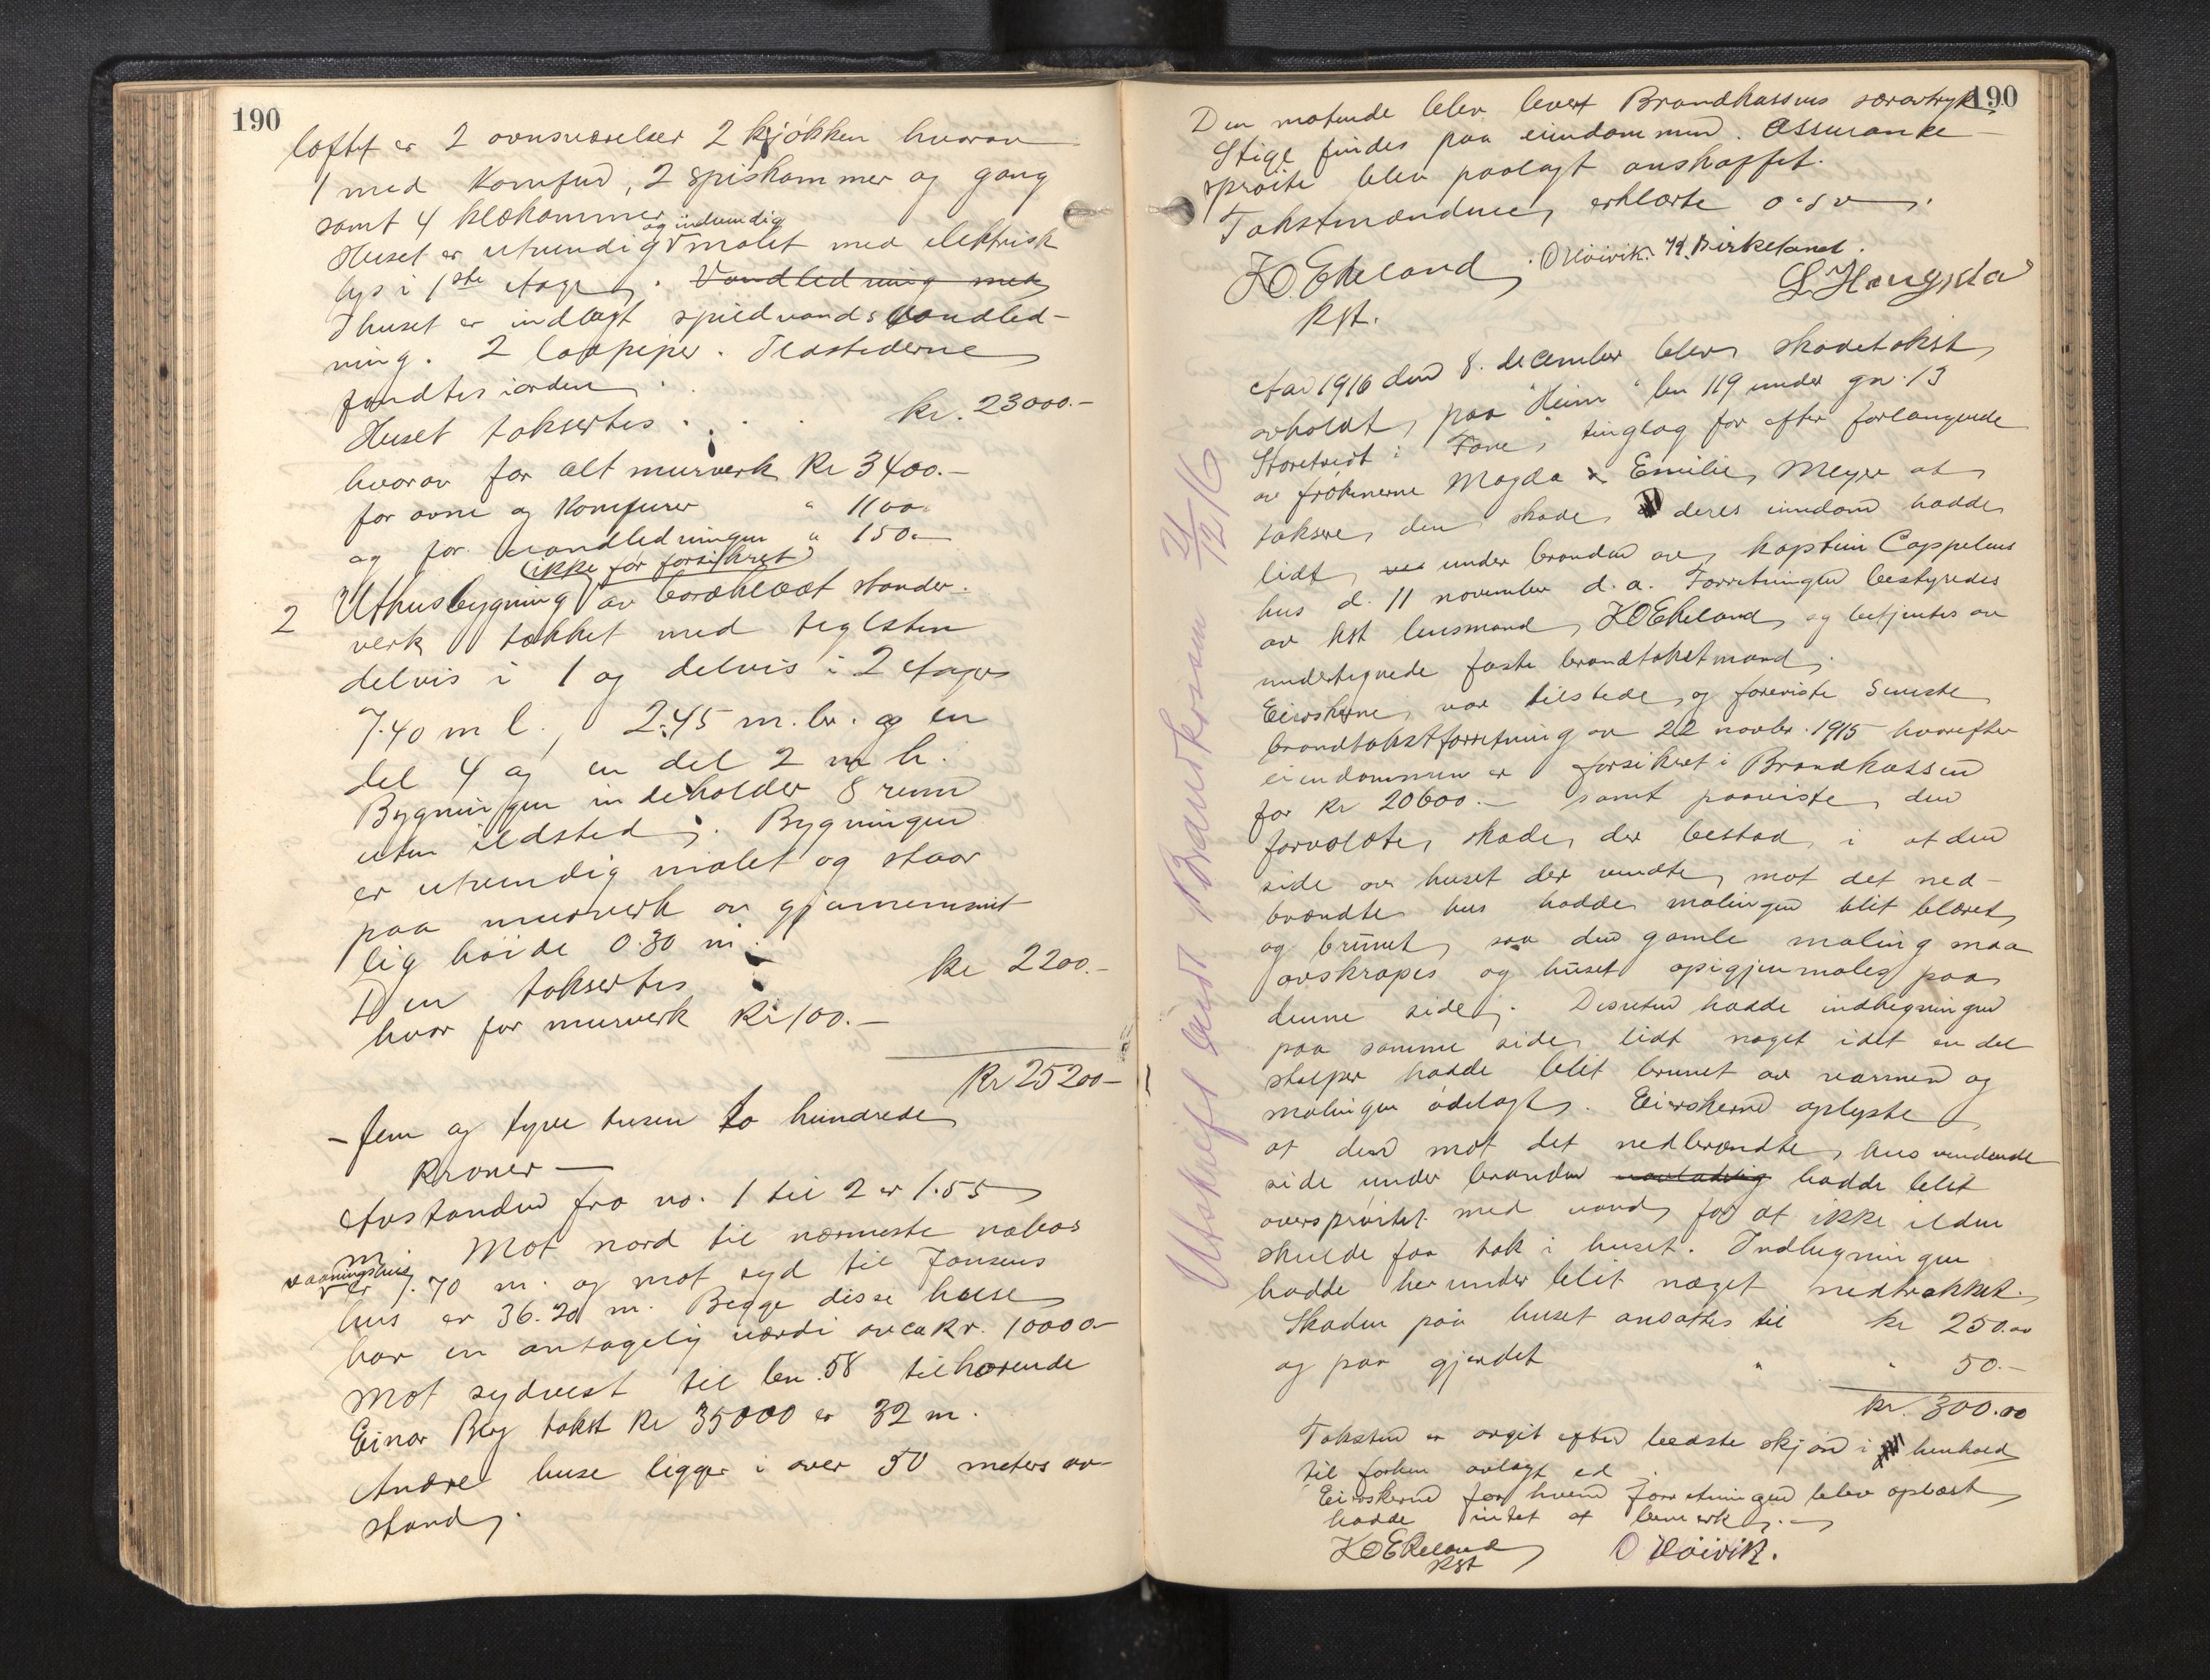 190
loftet er 2 ovnsværelser 2 kjøkken hvorav
1 med komfur, 2 spiskammer og gang
samt 4 klækammer
og indvendig
Huset er utvendig malet med elektrisk
lys i 1ste etage. Vandledning med
I huset er indlagt spildvands vandled-
ning. 2 løppiper. Ildstederne
fandtes i orden.
Huset taksertes . . . kr. 23000.-
hvorav for alt murverk Kr 3400.-
for ovne og Komfurer " 1100
og for vandledningen " 150.-
(ikke før forsikret)
2 Uthusbygning av bordklædt stender-
verk tækket med teglsten
delvis i 1 og delvis i 2 etager
7.40 m l., 2.45 m. br. og en
del 4 og en del 2 m h.
Bygningen indeholder 8 rum
uten ildsted. Bygningen
er utvendig malet og staar
paa murverk av gjennemsnit-
lig høide 0.30 m.
Den taksertes kr 2200.-
hvor for murverk Kr 100.-
Kr 25200-
- fem og tyve tusen to hundrede
Kroner -
Avstanden fra no. 1 til 2 er 1.55
m. Mot nord til nærmeste nabos
vaaningshus
er 7.70 m. og mot syd til Jansens
hus er 36.20 m. Begge disse huse
har en antagelig værdi av ca Kr. 10000-
Mot sydvest til bn. 58 tilhørende
Einar Berg takst Kr 35000 er 32 m.
Andre huse ligger i over 50 meters av-
stand.
190
Den møtende blev levert Brandkassens særavtryk.
Stige findes paa eiendommen. Assurance-
sprøite blev paalagt anskaffet.
Takstmændene erklærte o.s.v.
K.O. Ekeland O Høivik. K. Birkeland.
kst. L. Haugsda
Aar 1916 den 8. december blev skadetakst
avholdt paa "Heim" bn 119 under gn. 13
Storetveit i Fane tinglag for efter forlangende
av frøknerne Magda & Emilie Meyer at
taksere den skade deres eiendom hadde
lidt under branden av kaptein Cappelens
hus d. 11 november d. a. Forretningen bestyredes
av kst lensmand K.O Ekeland og betjentes av
undertegnede faste brandtakstmand.
Eierskerne var tilstede og foreviste seneste
brandtakstforretning av 22 novbr. 1915 hvorefter
eiendommen er forsikret i Brandkassen
for kr 20600.- samt paaviste den
forvoldte skade der bestod i at den
side av huset der vendte mot det ned-
brændte hus hadde malingen blit blæret
og brunet, saa den gamle maling maa
avskrapes og huset opigjenmales paa
denne side. Desuten hadde indhegningen
paa samme side lidt noget idet en del
stolper hadde blit brunet av varmen og
malingen ødelagt. Eierskerne oplyste
at den mot det nedbrændte hus vendende
side under branden hadde blit
oversprøitet med vand for at ikke ilden
skulde faa tak i huset. Indhegningen
hadde herunder blit noget nedtrakket.
Skaden paa huset ansattes til kr 250.00
og paa gjerdet " " 50.-
kr. 300.00
Taksten er avgit efter bedste skjøn i henhold
til forhen avlagt ed.
Eierskerne for hvem forretningen blev oplæst
hadde intet at bemerke.
K O Ekeland O Høivik.
kst
Utskrift sendt Brandkassen 21/12 16